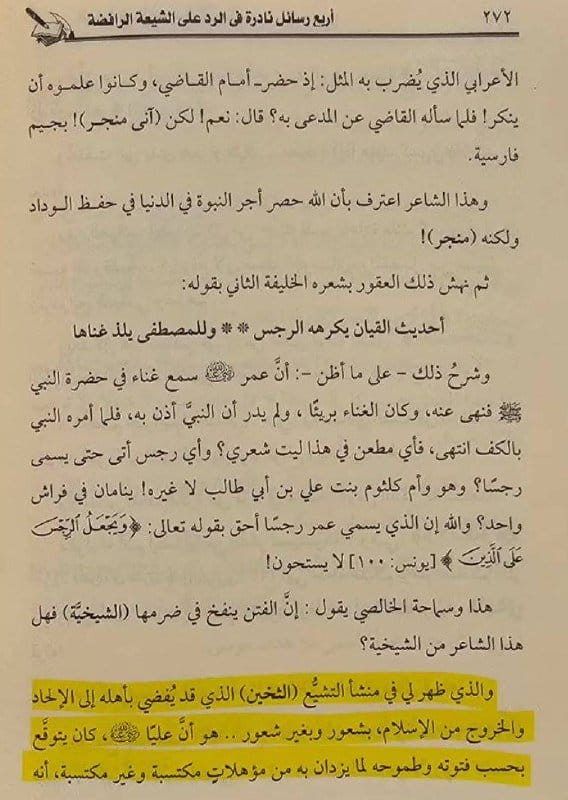 ٢٧٢
أربع رسائل نادرة في الرد على الشيعة الرافضة
الأعرابي الذي يُضرب به المثل: إذ حضر أمام القاضي، وكانوا علموه أن
ينكر! فلما سأله القاضي عن المدعى به؟ قال: نعم! لكن (آنى منجر)! بجيم
فارسية.
وهذا الشاعر اعترف بأن الله حصر أجر النبوة في الدنيا في حفظ الوداد
ولكنه (منجر)!
ثم نهش ذلك العقور بشعره الخليفة الثاني بقوله:
أحديث القيان يكرهه الرجس ** وللمصطفى يلذ غناها
وشرحُ ذلك - على ما أظن -: أنَّ عمر رضي الله عنه سمع غناء في حضرة النبي
ﷺ فنهى عنه، وكان الغناء بريئًا، ولم يدر أن النبيَّ أذن به، فلما أمره النبي
بالكف انتهى، فأي مطعن في هذا ليت شعري؟ وأي رجس أتى حتى يسمى
رجسًا؟ وهو وأم كلثوم بنت علي بن أبي طالب لا غيره! ينامان في فراش
واحد؟ والله إن الذي يسمي عمر رجسًا أحق بقوله تعالى: ﴿وَيَجْعَلُ الرِّجْسَ
عَلَى الَّذِينَ﴾ [يونس: ١٠٠] لا يستحون!
هذا وسماحة الخالصي يقول: إنَّ الفتن ينفخ في ضرمها (الشيخيَّة) فهل
هذا الشاعر من الشيخية؟
والذي ظهر لي في منشأ التشيُّع (الثخين) الذي قد يُفضي بأهله إلى الإلحاد
والخروج من الإسلام، بشعور وبغير شعور .. هو أنَّ عليًا رضي الله عنه، كان يتوقَّع
بحسب فتوته وطموحه لما يزدان به من مؤهلاتٍ مكتسبة وغير مكتسبة، أنه